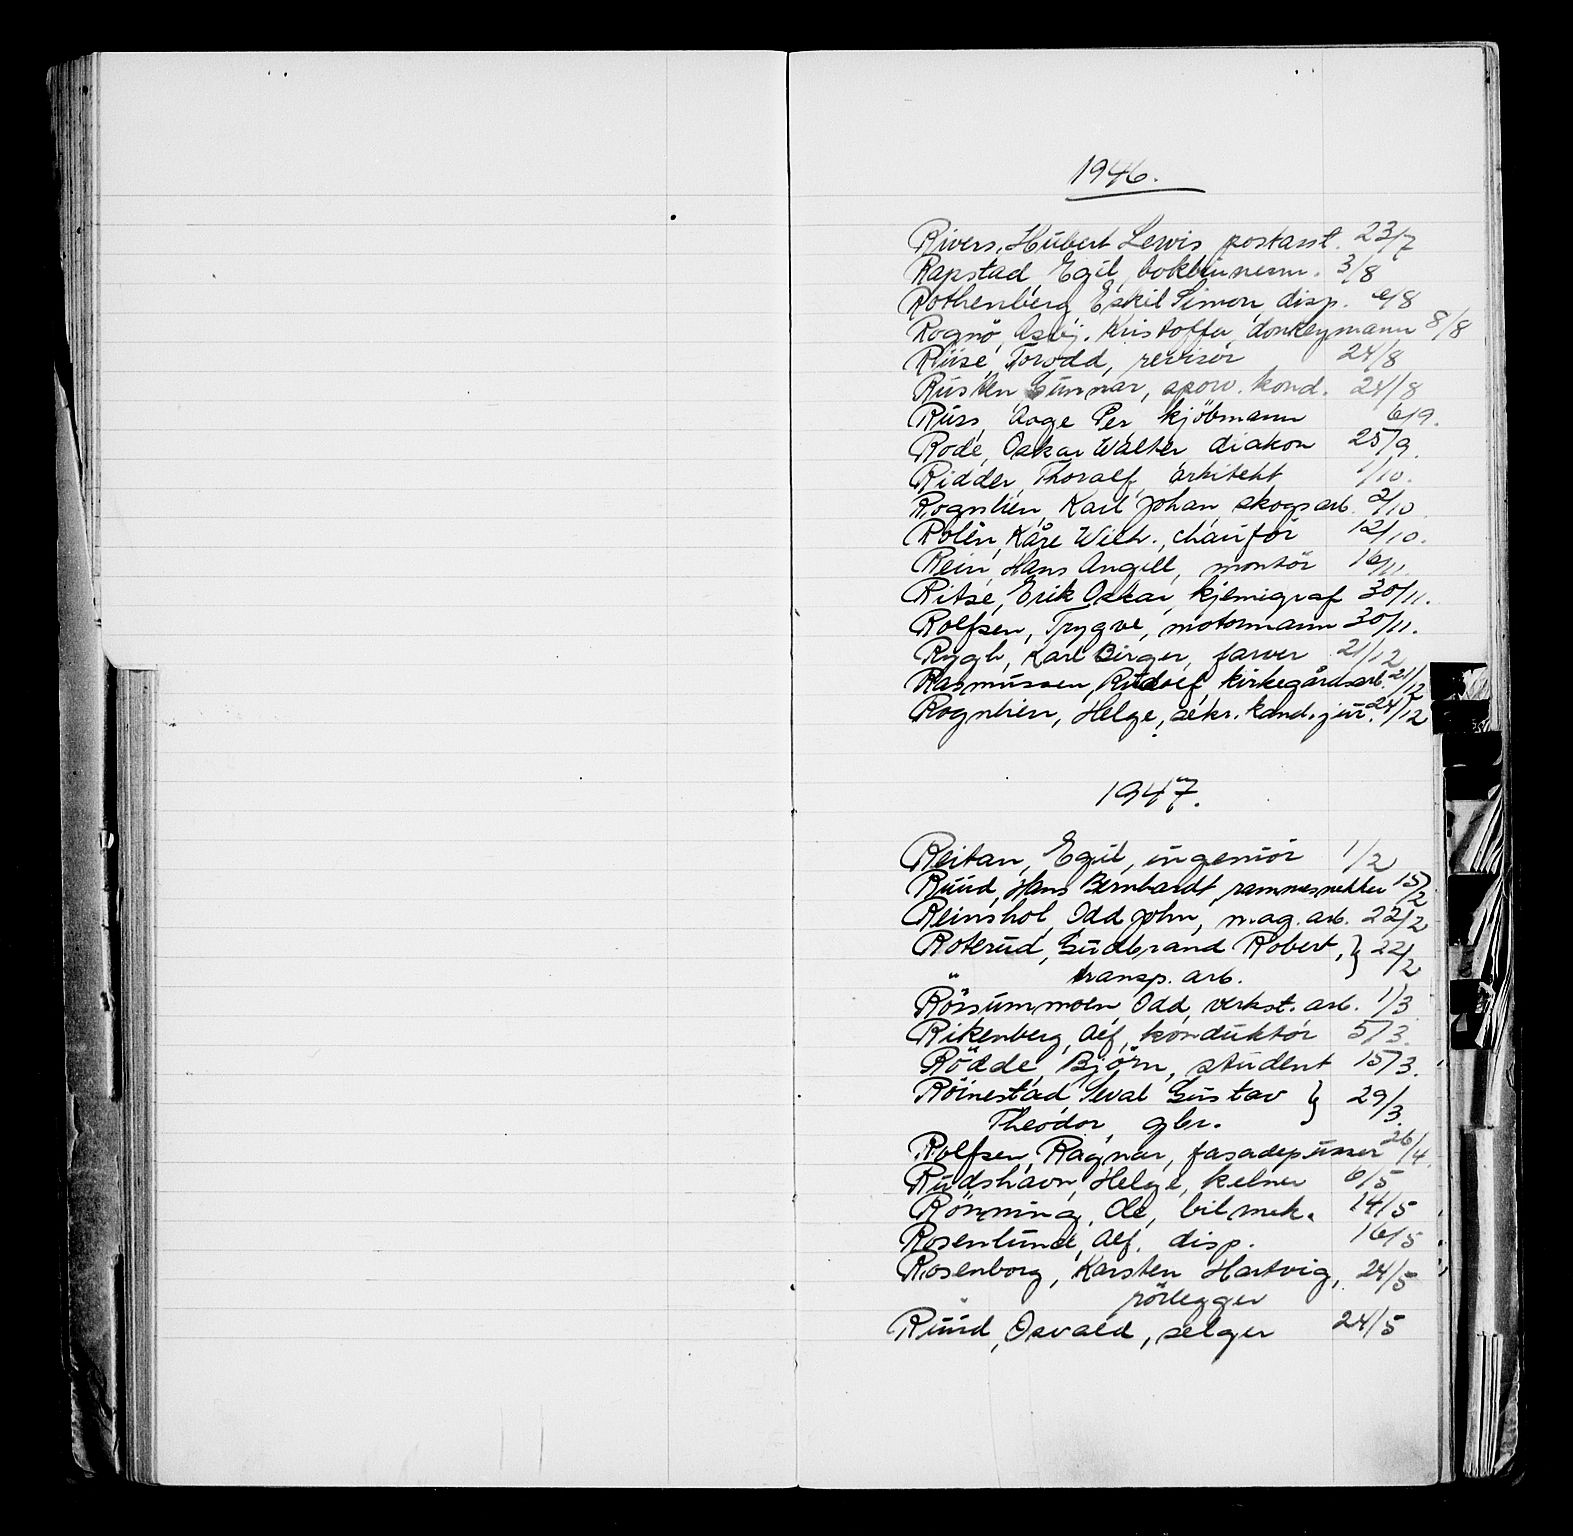 1946.
Rivers, Hubert Lewis postasst. 23/7
Rapstad, Egil, bokbinnerm. 3/8
Rothenberg, Eskil Simon, disp. 6/8
Rognö, Asbj. Kristoffer, donkeymann 8/8
Ruse, Torodd, revisor 24/8
Rusten Gunnar, sporv. kond. 24/8
Russ, Aage Per, kjöbmann 6/9.
Rode, Oskar Walter diakon 25/9.
Ridder, Thoralf, arkitekt 1/10.
Rognlien, Karl Johan skogsarb. 2/10
Rolén, Kåre Wilh., chaufför 12/10.
Rein, Hans Angell, montör 16/11.
Ritse, Erik Oskar, kjemigraf 30/11.
Rolfsen, Trygve, motormann 30/11.
Rygh, Karl Birger, farver 21/12
Rasmussen, Rudolf, kirkegårdsarb. 21/12
Rognlien, Helge, sekr. kand. jur. 24/12
1947.
Reitan, Egil, ingeniör 1/2
Ruud, Hans Bernhardt, rammesnekker 15/2
Reinshol, Odd John, mag. arb. 22/2
Roterud, Gudbrand Robert, } 22/2
transp. arb.
Rössummoen, Odd, verkst. arb. 1/3
Rikenberg, Alf, konduktör 5/3.
Rödde, Björn, student 15/3.
Röinestad Sevat Gustav } 29/3.
Theodor, gbr.
Rolfsen, Ragnar, fasadepusser 26/4.
Rudshavn, Helge, kelner 6/5
Rönning, Ole, bilmek. 14/5
Rosenlund, Alf. disp. 16/5
Rosenborg, Karsten Hartvig, 24/5
rörlegger
Ruud, Osvald, selger 24/5